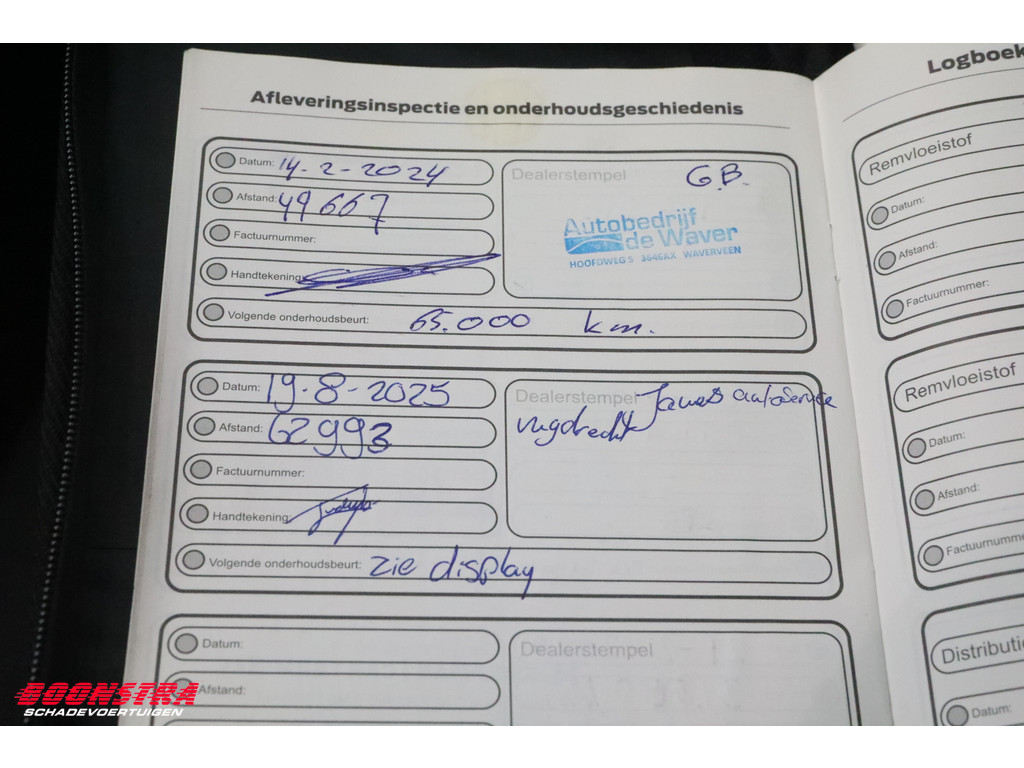 Afleveringsinspectie en onderhoudsgeschiedenis
Datum: 14-2-2024
Afstand: 49667
Factuurnummer:
Handtekening:
Volgende onderhoudsbeurt: 65.000 km.
Dealerstempel G.B.
Autobedrijf
de Waver
HOOFDWEG 5 3646AX WAVERVEEN
Datum: 19-8-2025
Afstand: 62993
Factuurnummer:
Handtekening:
Volgende onderhoudsbeurt: zie display
Dealerstempel autoservice
Datum:
Afstand:
Dealerstempel
Logboek
Remvloeistof
Datum:
Afstand:
Factuurnummer:
Remvloeistof
Datum:
Afstand:
Factuurnumme
Distributi
Datum:
BOONSTRA
SCHADEVOERTUIGEN